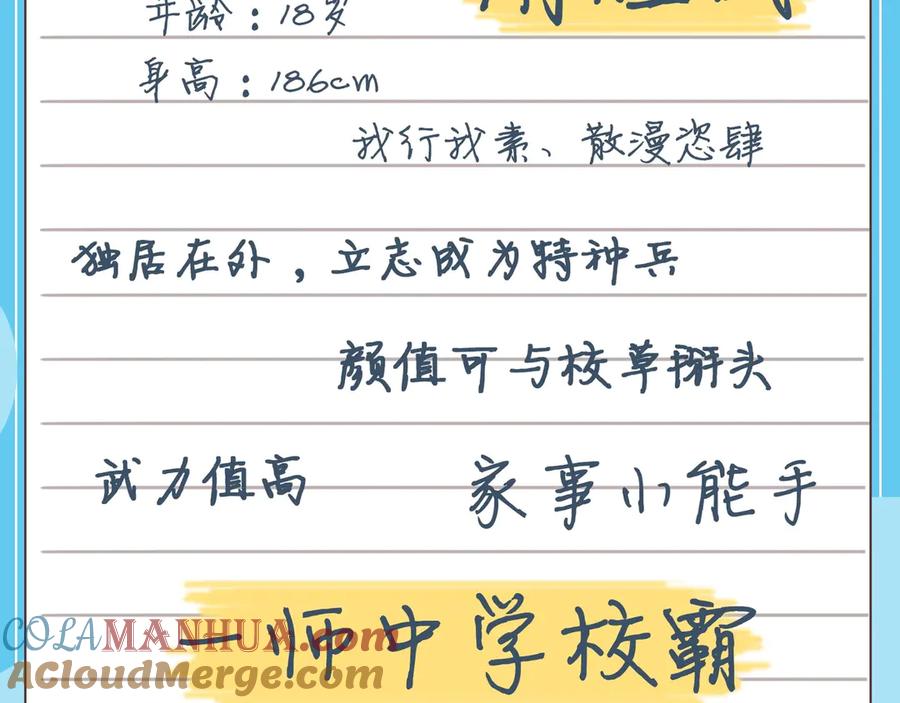 年龄：18岁
身高：186cm
我行我素、散漫恣肆
独居在外，立志成为特种兵
颜值可与校草掰头
武力值高 家事小能手
一师中学校霸
COLAMANHUA.com
AcloudMerge.com